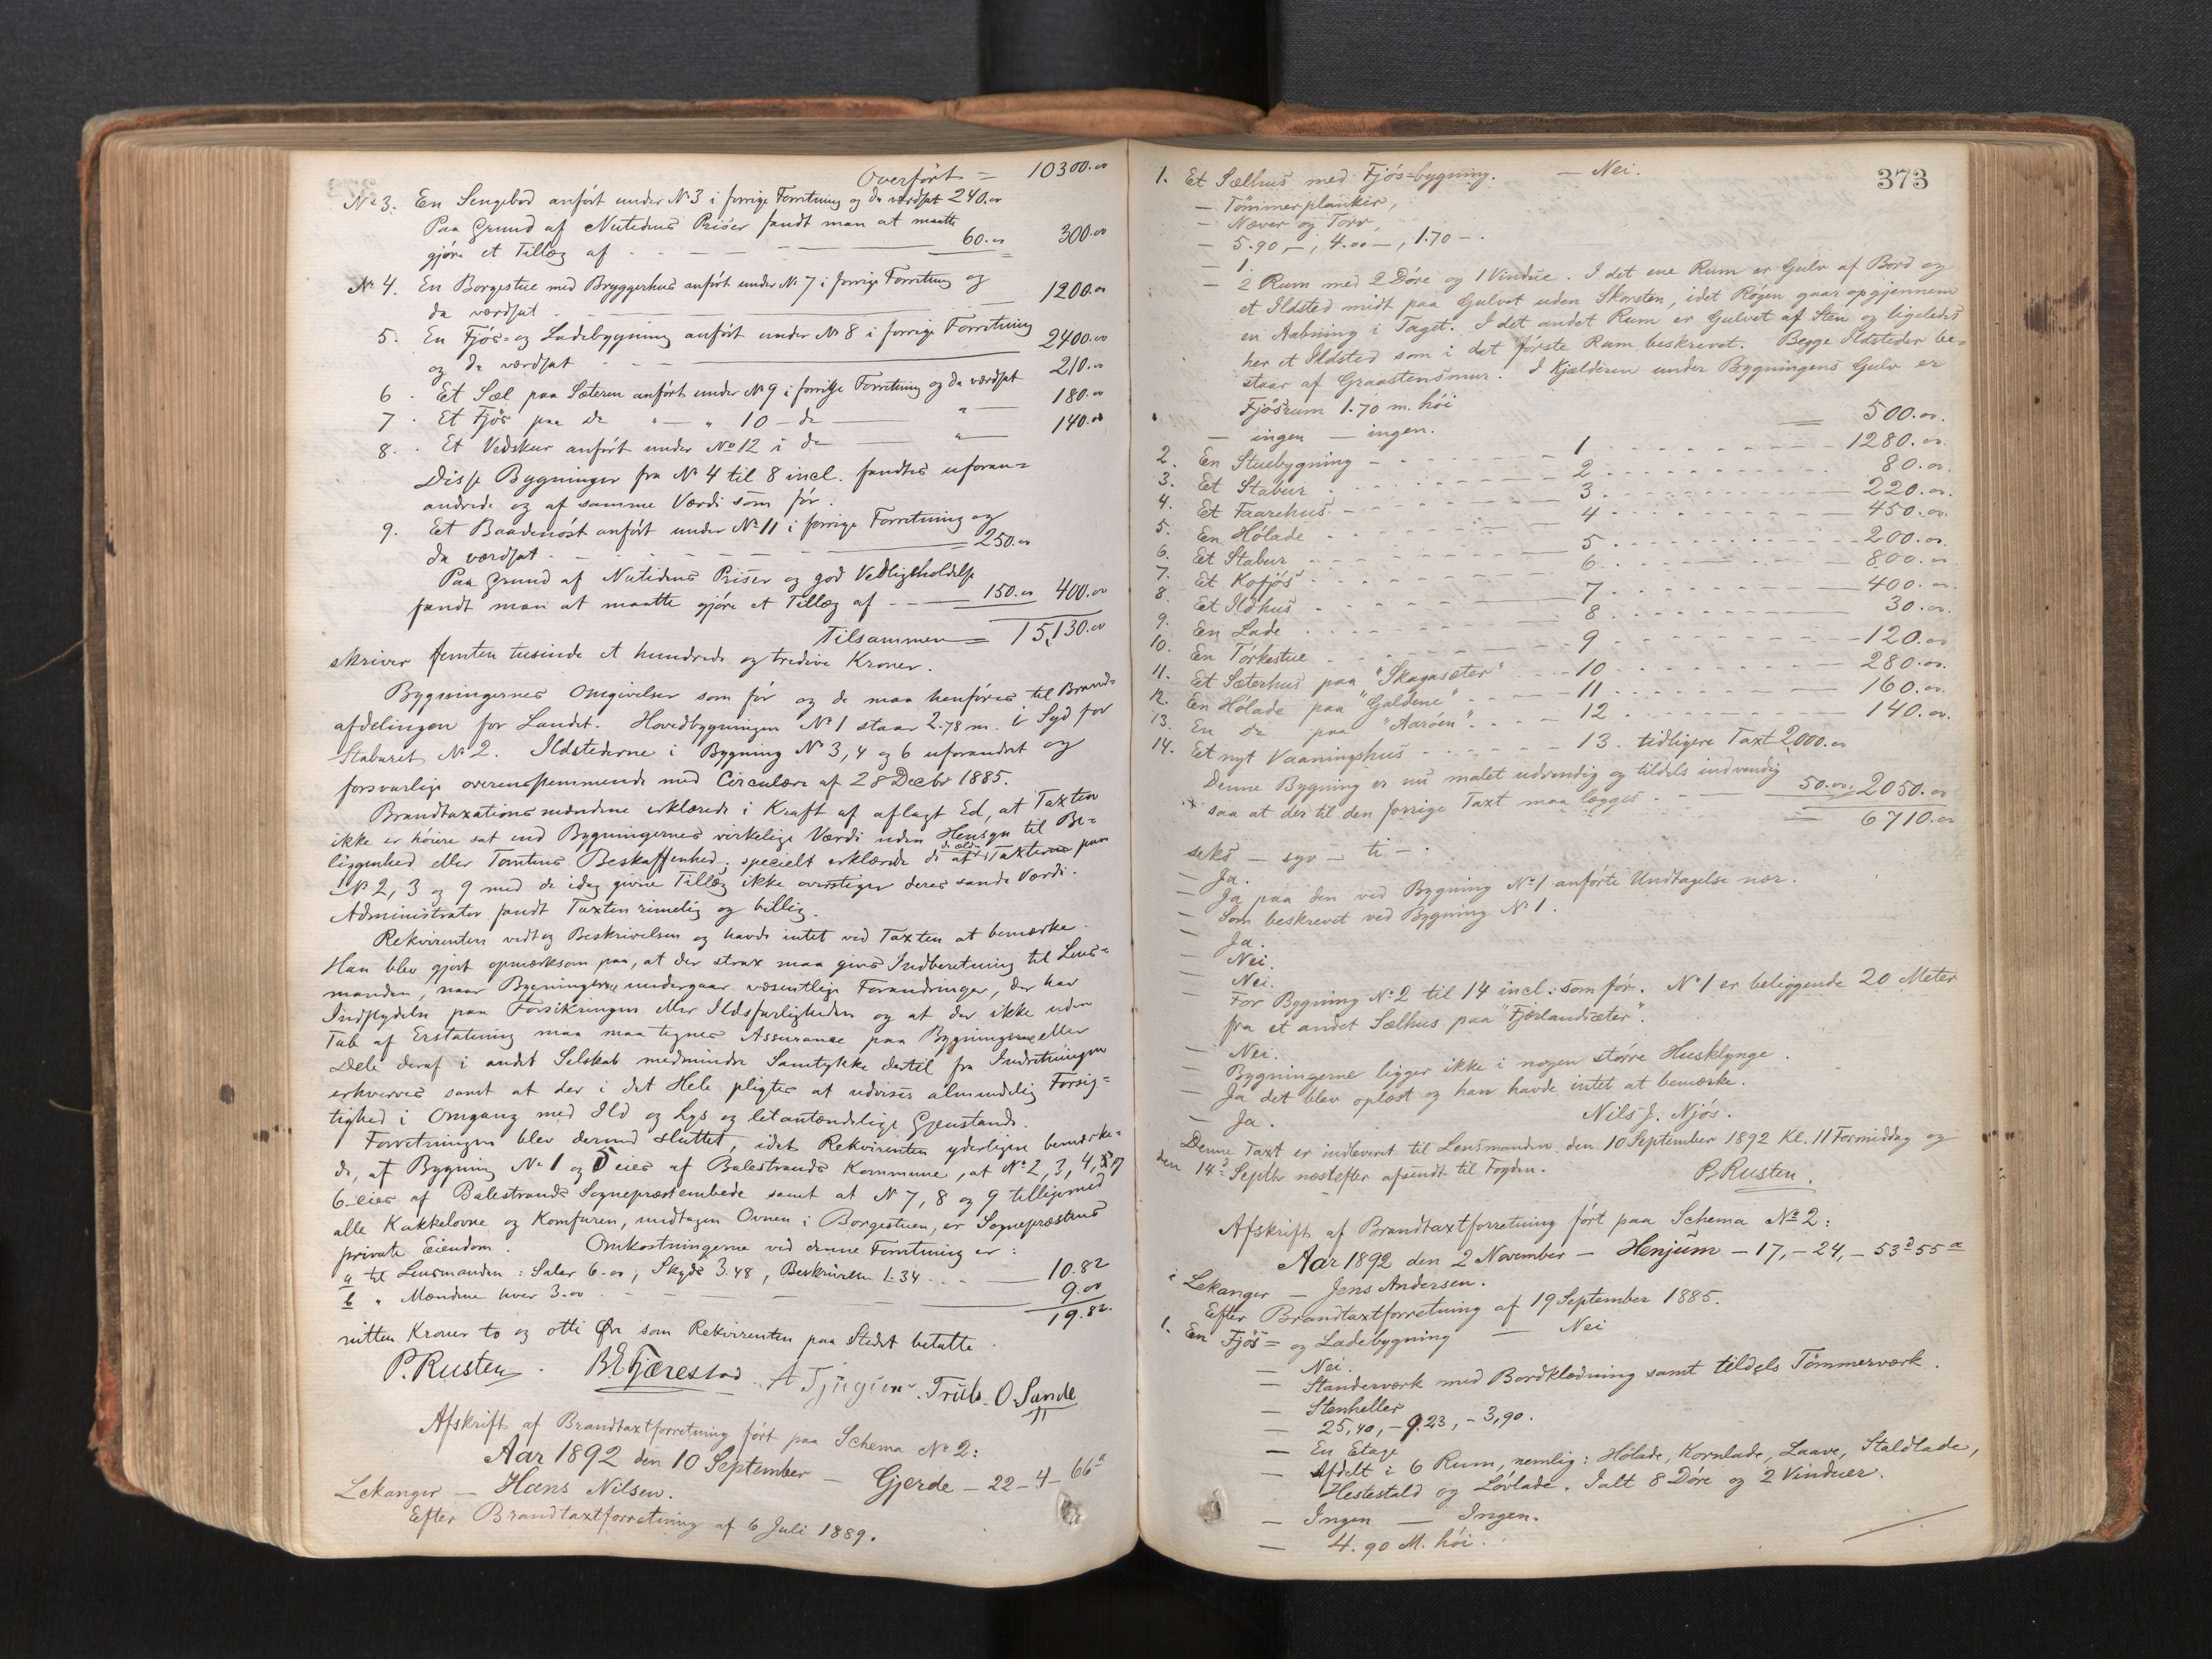 Overført = 10300.00
No 3. En Sengebod anført under No 3 i forrige Forretning og da værdsat 240.00
Paa Grund af Nutidens Priser fandt man at maatte
gjøre et Tillæg af - - - 60.00 300.00
No 4. En Borgestue med Bryggerhus anført under No 7 i forrige Forretning og
da værdsat - - 1200.00
5. En Fjøs- og Ladebygning anført under No 8 i forrige Forretning
og da værdsat - - - 2400.00
6. Et Sæl paa Sæteren anført under No 9 i forrige Forretning og da værdsat 210.00
7. Et Fjøs paa Do " — " 10 - do — " — 180.00
8. Et Vedskur anført under No 12 i do — " — 140.00
Disse Bygninger fra No 4 til 8 incl. fandtes uforan=
andrede og af samme Værdi som før.
9. Et Baadenøst anført under No 11 i forrige Forretning og
da værdsat - - - 250.00
Paa Grund af Nutidens Priser og god Vedligeholdelse
fandt man at maatte gjøre et Tillæg af - - 150.00 400.00
Tilsammen = 15,130.00
skriver femten tusinde et hundrede og tredive Kroner.
Bygningernes Omgivelser som før og de maa henføres til Brand=
afdelingen for Landet. Hovedbygningen No 1 staar 2.78 m. i Syd for
Staburet No 2. Ildstederne i Bygning No 3, 4 og 6 uforandret og
forsvarlige overensstemmende med Circulære af 28 Decbr 1885.
Brandtaxationsmændene erklærede i Kraft af aflagt Ed, at Taxten
ikke er høiere sat end Bygningernes virkelige Værdi uden Hensyn til Be=
liggenhed eller Tomtens Beskaffenhed; specielt erklærede de at de ældre Taxterne paa
No 2, 3 og 9 med de idag givne Tillæg ikke overstiger deres sande Værdi.
Administrator fandt Taxten rimelig og billig.
Rekvirenten vedtog Beskrivelsen og havde intet ved Taxten at bemærke.
Han blev gjort opmærksom paa, at der strax maa gives Indberetning til Lens=
manden, naar Bygningerne undergaar væsentlige Forandringer, der har
Indflydelse paa Forsikringen eller Ildsfarligheden og at der ikke uden
Tab af Erstatning maa maa tegnes Assurance paa Bygningerne eller
Dele deraf i andet Selskab medmindre Samtykke dertil fra Indretningen
erhverves samt at der i det Hele pligtes at udvises almindelig Forsig=
tighed i Omgang med Ild og Lys og letantændelige Gjenstande.
Forretningen blev dermed sluttet, idet Rekvirenten yderligere bemærke=
de, at Bygning No 1 og 5 eies af Balestrands Kommune, at No 2, 3, 4, og
6 eies af Balestrands Sognepræstembede samt at No 7, 8 og 9 tilligemed
alle Kakkelovne og Komfuren, undtagen Ovnen i Borgestuen, er Sognepræstens
private Eiendom. Omkostningerne ved denne Forretning er:
a til Lensmanden: Salær 6.00, Skyds 3.48, Beskrivelse 1.34 - - 10.82
b " Mændene hver 3.00 - - - 9.00
19.82.
nitten Kroner to og otti Øre som Rekvirenten paa Stedet betalte.
P. Rusten. B E Fjærestad. A Tjugum. Truls. O. Sande
Afskrift af Brandtaxtforretning ført paa Schema No 2:
Aar 1892 den 10 September - Gjerde - 22 - 4 - 66a
Lekanger - Hans Nilsen.
Efter Brandtaxtforretning af 6 Juli 1889.
373
1. Et Sælhus med Fjøs=bygning. — Nei.
— Tømmerplanker,
— Næver og Torv,
— 5.90 —, 4.00 —, 1.70 —.
— 1.
— 2 Rum med 2 Døre og 1 Vindue. I det ene Rum er Gulv af Bord og
et Ildsted midt paa Gulvet uden Skorsten, idet Røgen gaar opgjennem
en Aabning i Taget. I det andet Rum er Gulvet af Sten og ligeledes
her et Ildsted som i det første Rum beskrevet. Begge Ildsteder be=
staar af Graastensmur. I Kjælderen under Bygningens Gulv er
Fjøsrum 1.70 m. høi
— ingen — ingen. = 500.00.
2. En Stuebygning - - - 1 - - - 1280.00.
3. Et Stabur - - - 2 - - - 80.00.
4. Et Faarehus - - - 3 - - - 220.00.
5. En Hølade - - - 4 - - - 450.00.
6. Et Stabur - - - 5 - - - 200.00.
7. Et Kofjøs - - - 6 - - - 800.00
8. Et Ildhus - - - 7 - - - 400.00
9. En Lade - - - 8 - - - 30.00.
10. En Tørkestue - - - 9 - - - 120.00
11. Et Sæterhus paa "Skagasæter" - - 10 - - - 280.00.
12. En Hølade paa "Galdene" - - - 11 - - - 160.00.
13. En Do paa "Aarøen" - - - 12 - - - 140.00.
14. Et nyt Vaaningshus - - - 13. tidligere Taxt 2000.00
Denne Bygning er nu malet udvendig og tildels indvendig
saa at der til den forrige Taxt maa lægges - - 50.00. 2050.00
= 6710.00
seks — syv — ti — .
— Ja.
— Ja paa den ved Bygning No 1 anførte Undtagelse nær.
— Som beskrevet ved Bygning No 1.
— Ja.
— Nei.
— Nei.
— For Bygning No 2 til 14 incl: som før. No 1 er beliggende 20 Meter
fra et andet Sælhus paa "Fjærlandsæter".
— Nei.
— Bygningerne ligger ikke i nogen større Husklynge.
— Ja det blev oplæst og han havde intet at bemærke.
— Ja. Nils J. Njøs.
Denne Taxt er indleveret til Lensmanden den 10 September 1892 Kl. 11 Formiddag og
den 14de Septbr næstefter afsendt til Fogden.
P. Rusten.
Afskrift af Brandtaxtforretning ført paa Schema No 2:
Aar 1892 den 2 November — Henjum — 17, — 24, — 53d 55a
i Lekanger — Jens Andersen.
Efter Brandtaxtforretning af 19 September 1885.
1. En Fjøs= og Ladebygning — Nei
— Nei.
— Standerværk med Bordklædning samt tildels Tømmerværk.
— Stenheller
— 25,40, — 9.23, — 3,90.
— En Etage
— Afdelt i 6 Rum, nemlig: Hølade, Kornlade, Laave, Staldlade,
Hestestald og Løvlade. Ialt 8 Døre og 2 Vinduer.
— Ingen — Ingen.
— 4.90 M. høi.